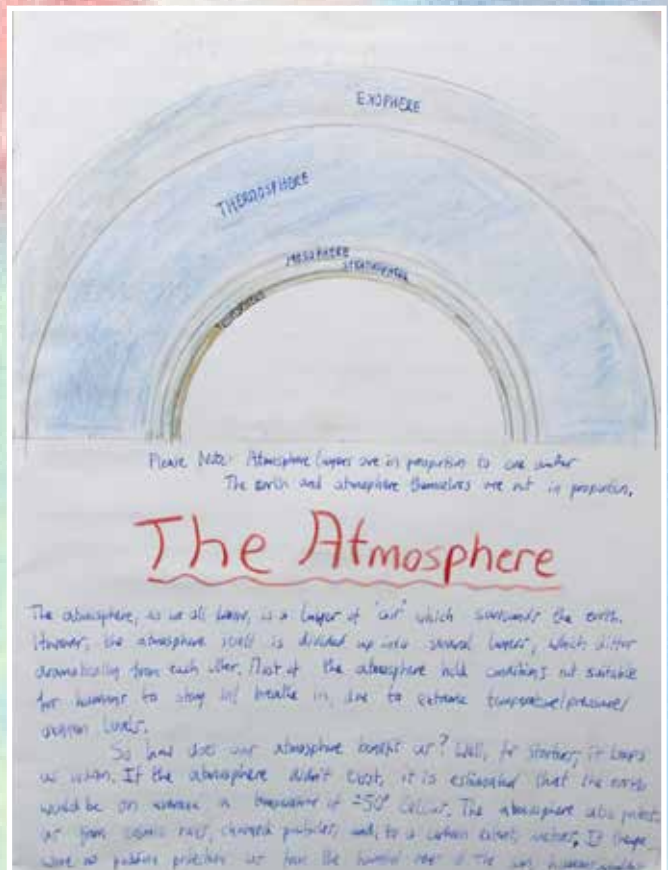 EXOPHERE
THERMOSPHERE
MESOPHERE
STRATOSPHERE
Please Note: Atmosphere layers are in proportion to one another
The earth and atmosphere themselves are not in proportion.
The Atmosphere
The atmosphere, as we all know, is a layer of 'air' which surrounds the earth.
However, the atmosphere itself is divided up into several layers, which differ
dramatically from each other. Most of the atmosphere hold conditions not suitable
for humans to stay in/ breathe in, due to extreme temperature/pressure/
oxygen levels.
So how does our atmosphere benefit us? Well, for starters, it keeps
us warm. If the atmosphere didn't exist, it is estimated that the earth
would be on average a temperature of -50° Celcius. The atmosphere also protects
us from cosmic rays, charged particles, and, to a certain extent, meteors. If there
were no protecting us from the of the sun, humans